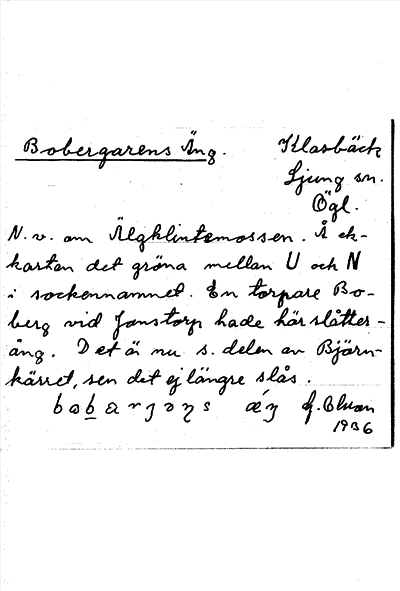 Bobergarens Äng. Klarbäck
Ljung sn.
Ögl.
N.v. om Älgklintemossen. Å ek-
kartan det gröna mellan U och N
i sockennamnet. En torpare Bo-
berg vid Jonstorp hade här slåtter-
äng. Det är nu s. delen av Björn-
kärret, sen det ej längre slås.
1936